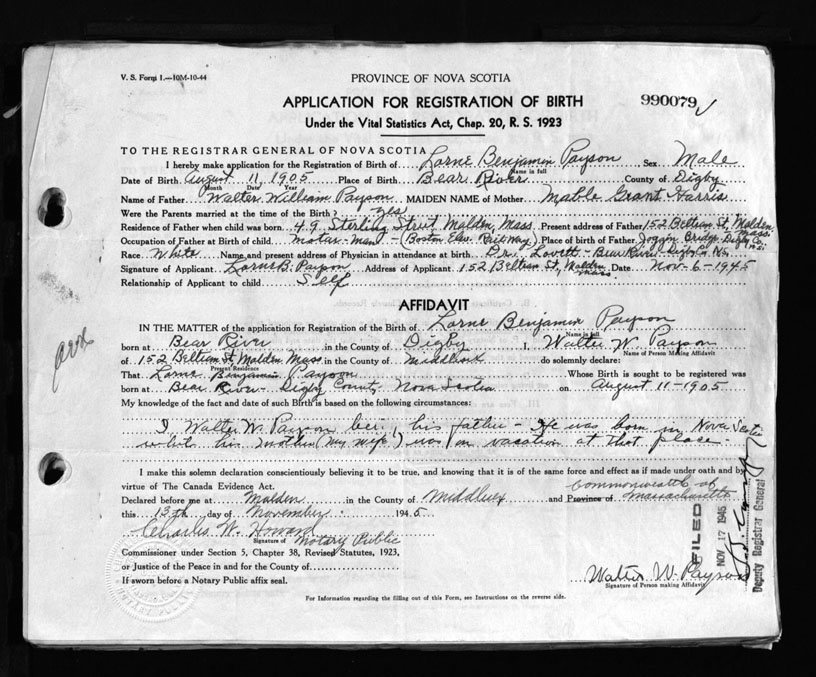 V. S. Form 1.—10M-10-44
PROVINCE OF NOVA SCOTIA
APPLICATION FOR REGISTRATION OF BIRTH
990079
Under the Vital Statistics Act, Chap. 20, R. S. 1923
TO THE REGISTRAR GENERAL OF NOVA SCOTIA
I hereby make application for the Registration of Birth of Lorne Benjamin Payson Sex Male
Name in full
Date of Birth August 11, 1905 Place of Birth Bear River County of Digby
Month Date Year
Name of Father Walter William Payson MAIDEN NAME of Mother Mable Grant Harris
Were the Parents married at the time of the Birth? yes
Residence of Father when child was born 49 Sterling Street Malden, Mass. Present address of Father 152 Beltran St, Malden, Mass.
Occupation of Father at Birth of child motor-man - (Boston Elev. Railway) Place of birth of Father Joggin Bridge Digby Co. N.S.
Race White Name and present address of Physician in attendance at birth Dr. Lovett - Bear River - Digby Co N.S.
Signature of Applicant Lorne B. Payson Address of Applicant 152 Beltran St, Malden Mass Date Nov-6-1945
Relationship of Applicant to child Self
AFFIDAVIT
IN THE MATTER of the application for Registration of the Birth of Lorne Benjamin Payson
Name in full
born at Bear River in the County of Digby I, Walter W. Payson
Name of Person Making Affidavit
of 152 Beltran St, Malden Mass in the County of Middlesex do solemnly declare:
Present Residence
That Lorne Benjamin Payson Whose Birth is sought to be registered was
born at Bear River Digby County Nova Scotia on August 11-1905
My knowledge of the fact and date of such Birth is based on the following circumstances:
I Walter W. Payson being his father - He was born in Nova Scotia
while his mother (my wife) was on vacation at that place.
I make this solemn declaration conscientiously believing it to be true, and knowing that it is of the same force and effect as if made under oath and by
virtue of The Canada Evidence Act.
Declared before me at Malden in the County of Middlesex and Province of Commonwealth of Massachusetts
this 13th day of November 1945
Charles W. Howard
Signature of Notary Public
Commissioner under Section 5, Chapter 38, Revised Statutes, 1923,
or Justice of the Peace in and for the County of
If sworn before a Notary Public affix seal.
Walter W. Payson
Signature of Person making Affidavit
For Information regarding the filling out of this Form, see Instructions on the reverse side.
FILED
NOV 17 1945
Deputy Registrar General